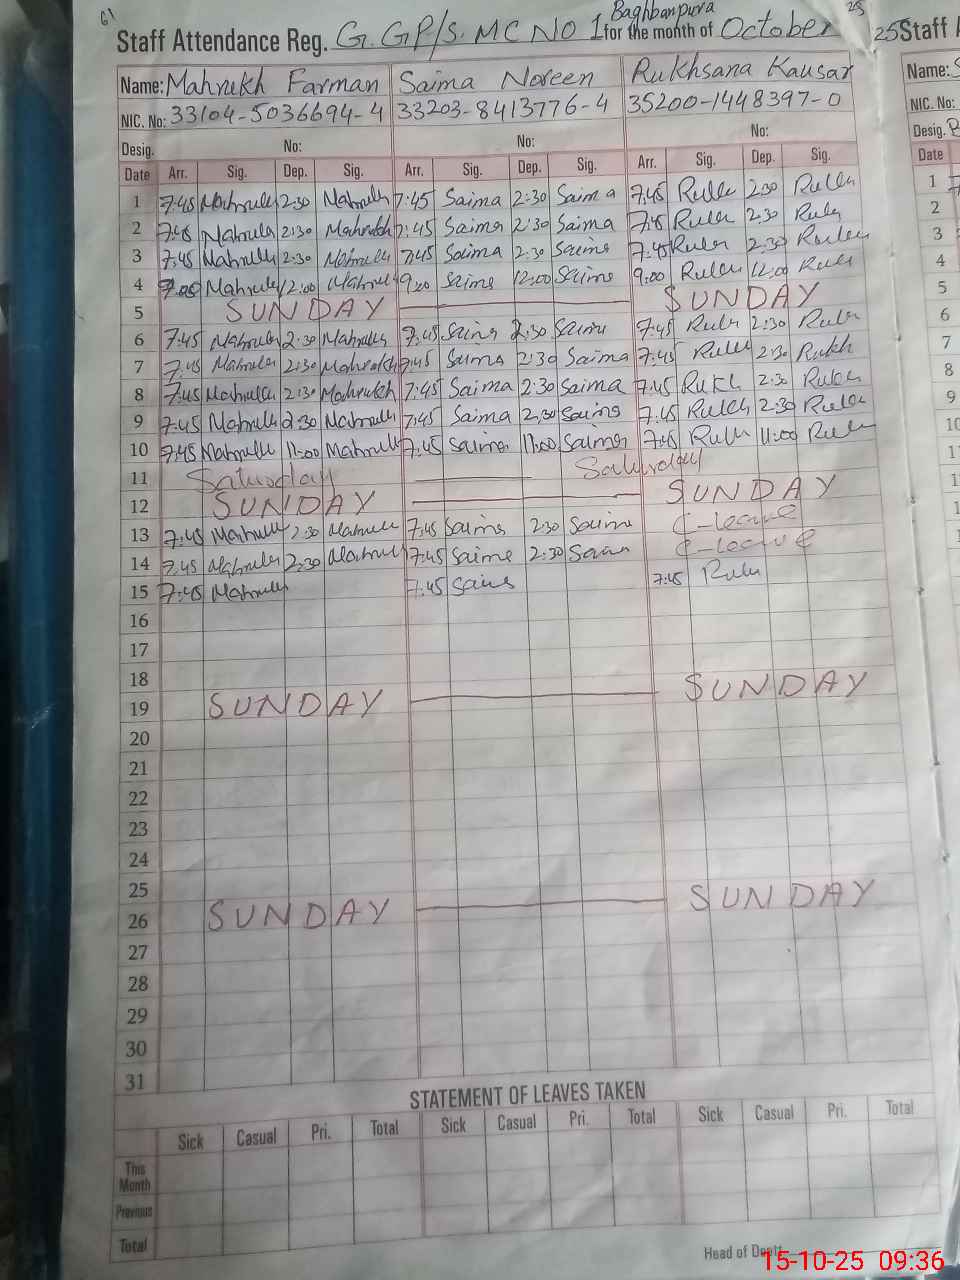 61
Baghbanpura
Staff Attendance Reg. G.GP/S. MC NO 1 for the month of October 25 Staff
Name: Mahrukh Farman Saima Noreen Rukhsana Kausar Name:
NIC. No: 33104-5036694-4 33203-8413776-4 35200-1448397-0 NIC. No:
Desig. No: No: No: Desig.
Date Arr. Sig. Dep. Sig. Arr. Sig. Dep. Sig. Arr. Sig. Dep. Sig. Date
1 7:45 Mahrukh 2:30 Mahrukh 7:45 Saima 2:30 Saima 7:45 Rukh 2:30 Rukh 1
2 7:45 Mahrukh 2:30 Mahrukh 7:45 Saima 2:30 Saima 7:45 Rukh 2:30 Rukh 2
3 7:45 Mahrukh 2:30 Mahrukh 7:45 Saima 2:30 Saima 7:45 Rukh 2:30 Rukh 3
4 Mahrukh 12:00 Mahrukh 9:00 Saima 12:00 Saima 9:00 Rukh 12:00 Rukh 4
5 SUNDAY SUNDAY 5
6 7:45 Mahrukh 2:30 Mahrukh 7:45 Saima 2:30 Saima 7:45 Rukh 2:30 Rukh 6
7 7:45 Mahrukh 2:30 Mahrukh 7:45 Saima 2:30 Saima 7:45 Rukh 2:30 Rukh 7
8 7:45 Mahrukh 2:30 Mahrukh 7:45 Saima 2:30 Saima 7:45 Rukh 2:30 Rukh 8
9 7:45 Mahrukh 2:30 Mahrukh 7:45 Saima 2:30 Saima 7:45 Rukh 2:30 Rukh 9
10 7:45 Mahrukh 11:00 Mahrukh 7:45 Saima 11:00 Saima 7:45 Rukh 11:00 Rukh 10
11 Saturday Saturday 11
12 SUNDAY SUNDAY
13 7:45 Mahrukh 2:30 Mahrukh 7:45 Saima 2:30 Saima C-leave
14 7:45 Mahrukh 2:30 Mahrukh 7:45 Saima 2:30 Saima C-leave
15 7:45 Mahrukh 7:45 Saima 7:45 Rukh
16
17
18
19 SUNDAY SUNDAY
20
21
22
23
24
25
26 SUNDAY SUNDAY
27
28
29
30
31
STATEMENT OF LEAVES TAKEN
Sick Casual Pri. Total Sick Casual Pri. Total Sick Casual Pri. Total
This Month
Previous
Total
Head of Deptt.
15-10-25 09:36